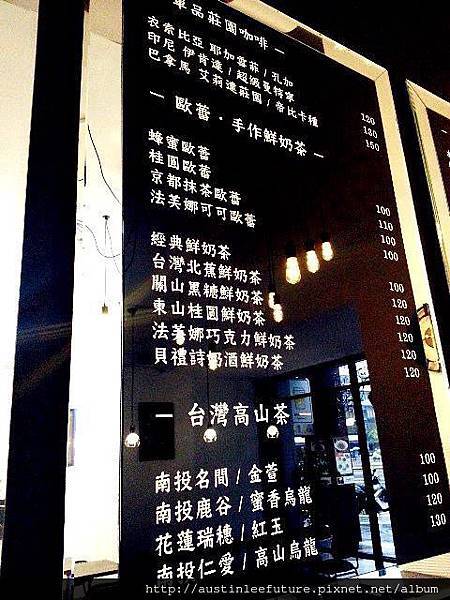 單品莊園咖啡 —
衣索比亞 耶加雪菲/孔加 120
印尼 伊肯達/超級曼特寧 130
巴拿馬 艾莉達莊園/帝比卡種 150
— 歐蕾・手作鮮奶茶 —
蜂蜜歐蕾 100
桂圓歐蕾 110
京都抹茶歐蕾 100
法芙娜可可歐蕾 100
經典鮮奶茶 100
台灣北蕉鮮奶茶 120
關山黑糖鮮奶茶 120
東山桂圓鮮奶茶 120
法芙娜巧克力鮮奶茶 120
貝禮詩奶酒鮮奶茶 120
— 台灣高山茶 —
南投名間/金萱 100
南投鹿谷/蜜香烏龍 100
花蓮瑞穗/紅玉 120
南投仁愛/高山烏龍 130
http://austinleefuture.pixnet.net/album